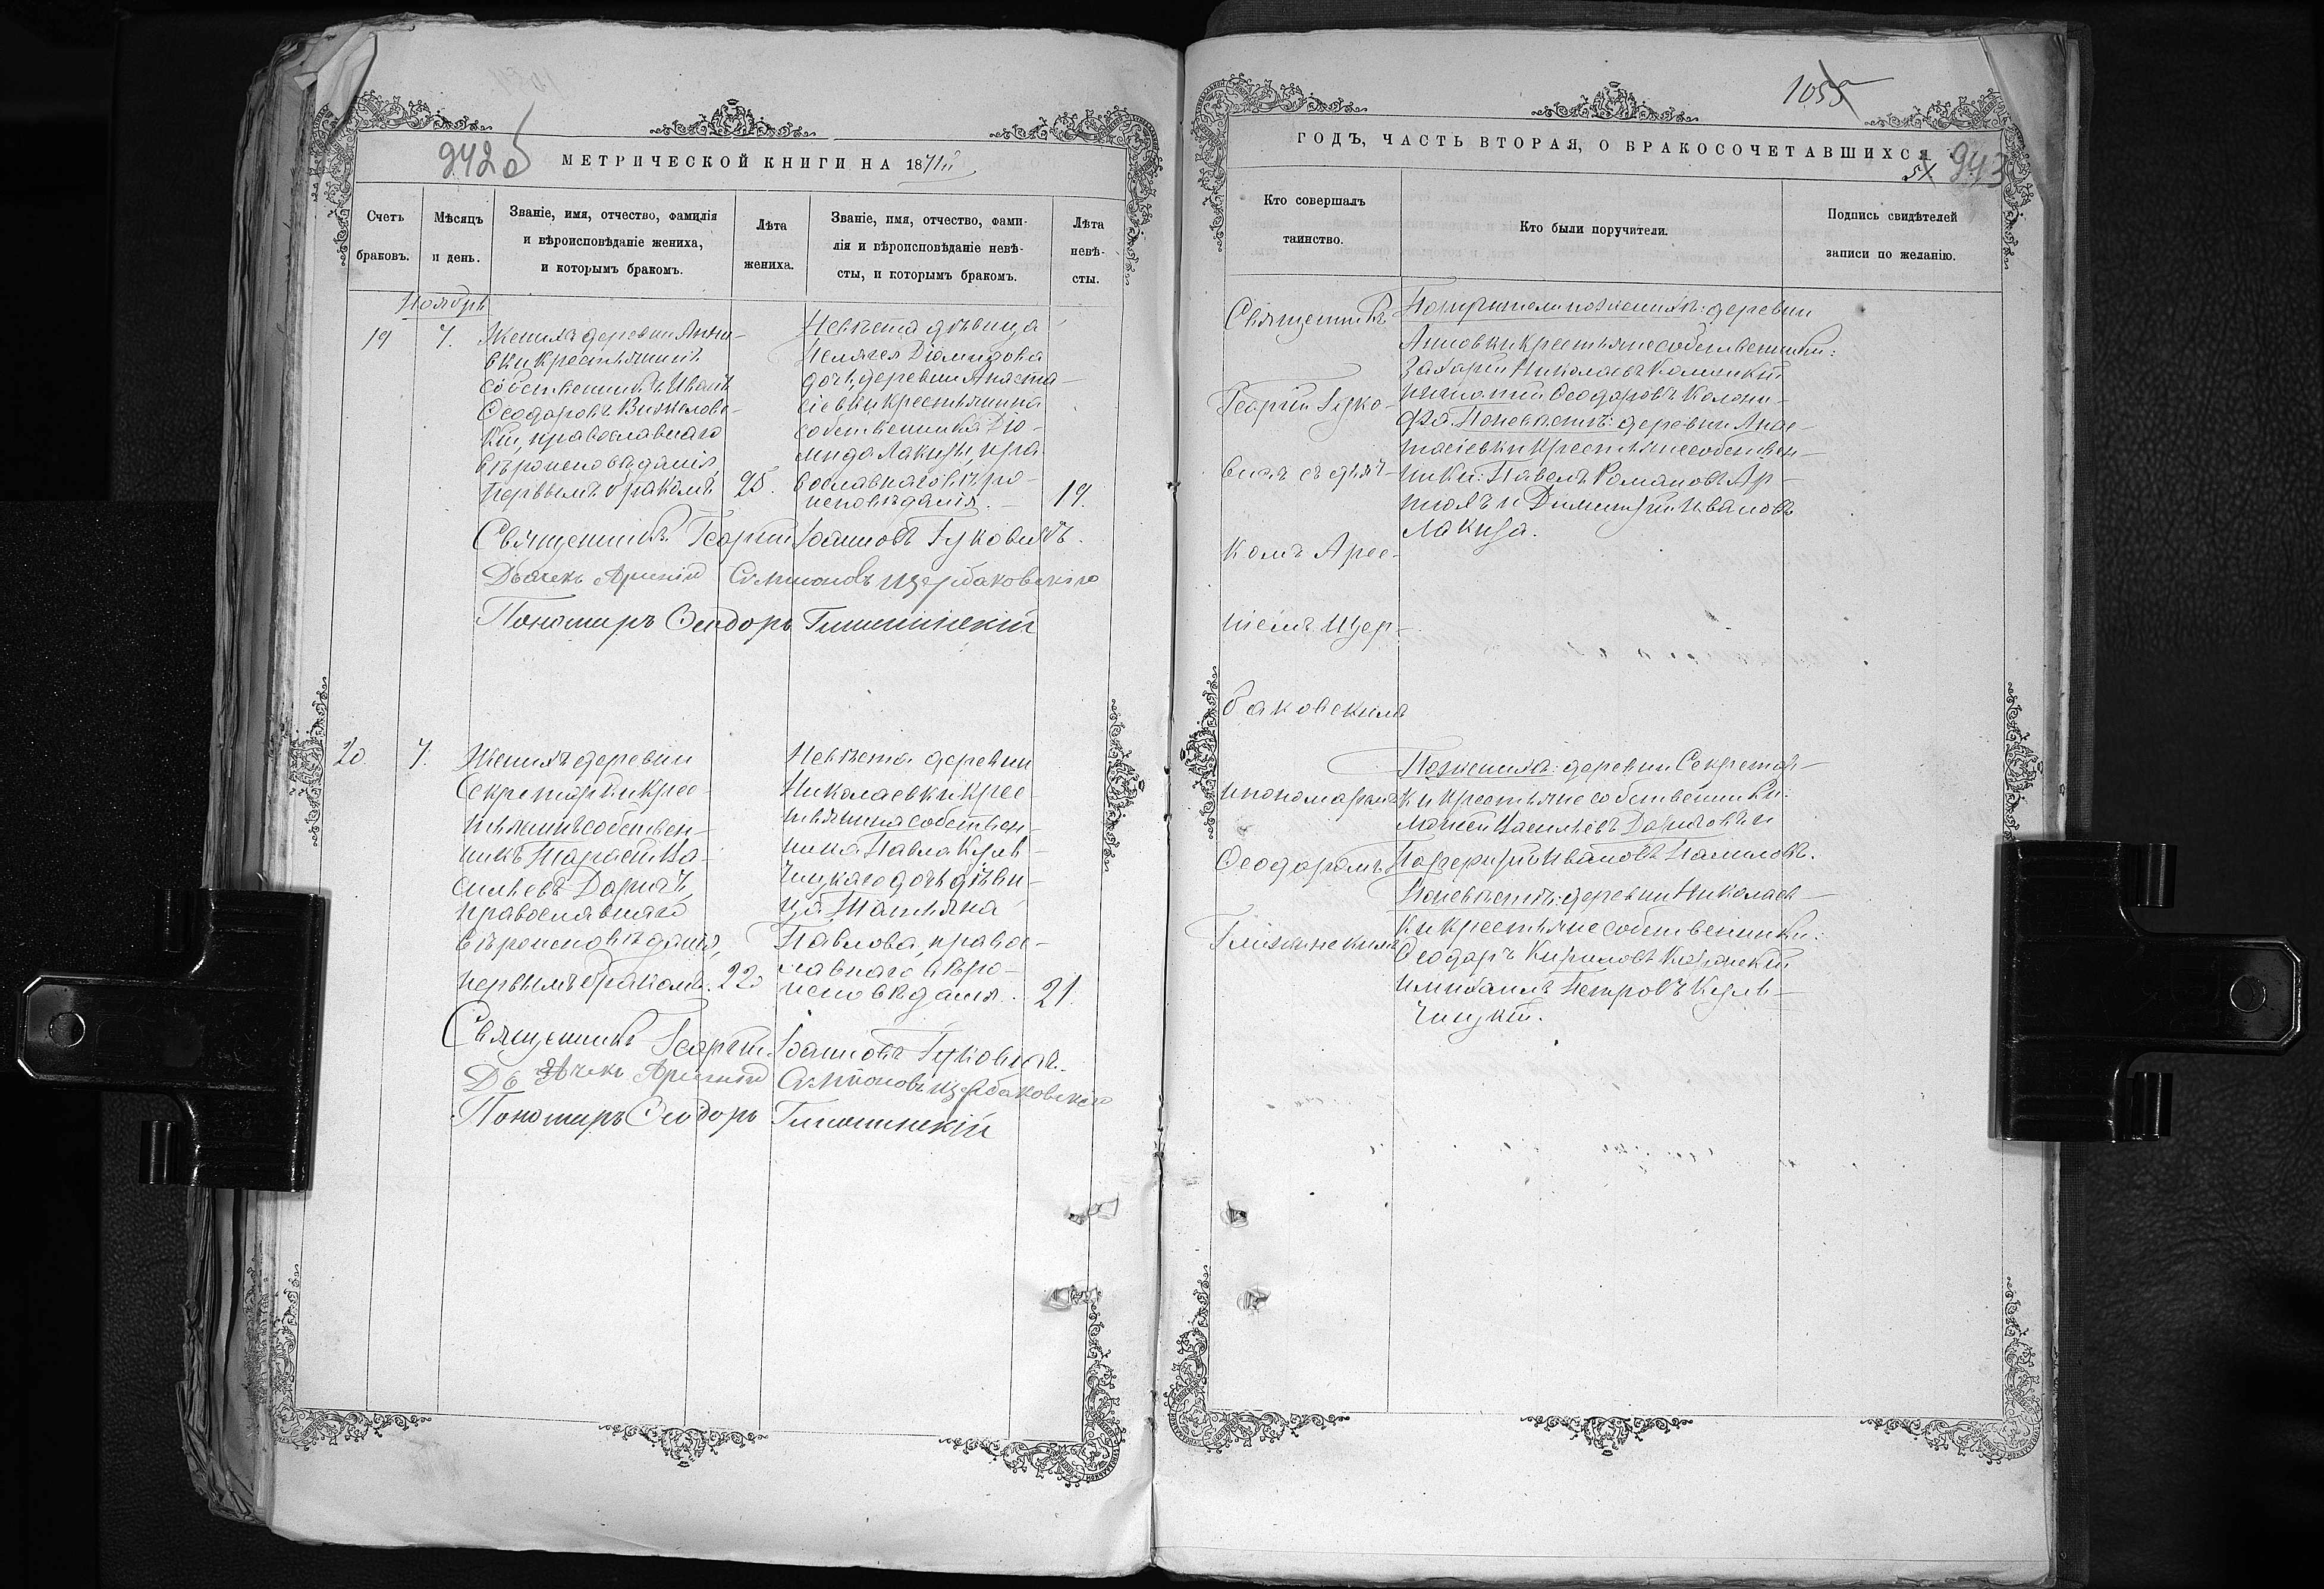 942об
МЕТРИЧЕСКОЙ КНИГИ НА 1871й
Счетъ браковъ.
Мѣсяцъ и день.
Званіе, имя, отчество, фамилія
и вѣроисповѣданіе жениха,
и которымъ бракомъ.
Лѣта
жениха.
Званіе, имя, отчество, фами-
лія и вѣроисповѣданіе невѣ-
сты, и которымъ бракомъ.
Лѣта
невѣ-
сты.
Ноябрь
19
7.
Женихъ деревни Анно-
вки крестьянинъ
собственникъ Иванъ
Ѳеодоровъ
кій, православнаго
вѣроисповѣданія,
первымъ бракомъ
25.
Невѣста дѣвица
Пелагея Діомидова
дочь, деревни Анаста-
сіевки крестьянина
собственника Діо-
мида Лакизы, пра-
вославнаго вѣро-
исповѣданія.
19.
Священникъ Георгій Іоанновъ Гуковичъ.
Дьячекъ Арсеній Симеоновъ Щербаковскій
Пономарь Ѳеодоръ
20.
7.
Женихъ деревни
Секретарки крес-
тьянинъ собствен-
никъ Тарасій Ва-
сильевъ
православнаго
вѣроисповѣданія,
первымъ бракомъ.
22.
Невѣста деревни
Николаевки крес-
тьянина собствен-
ника Павла Куль-
чицкаго дочь дѣви-
ца Татьяна
Павлова, правос-
лавнаго вѣро-
исповѣданія.
21.
Священникъ Георгій Іоанновъ Гуковичъ.
Дьячекъ Арсеній Симеоновъ Щербаковскій
Пономарь Ѳеодоръ
1055
ГОДЪ, ЧАСТЬ ВТОРАЯ, О БРАКОСОЧЕТАВШИХСЯ
943
Кто совершалъ
таинство.
Кто были поручители.
Подпись свидѣтелей
записи по желанію.
Священникъ
Георгій Гуко-
вичъ съ дьяч-
комъ Арсе-
ніемъ Щер-
баковскимъ
и пономаремъ
Ѳеодоромъ
Поручители по женихѣ: деревни
Анновки крестьяне собственники:
Захарій Николаевъ
Ѳеодоровъ
По невѣстѣ: деревни Анас-
тасіевки крестьяне собствен-
ники: Павелъ Романовъ Ар-
и Димитрій Ивановъ
Лакиза.
По женихѣ: деревни Секретар-
ки крестьяне собственники:
Васильевъ
Ивановъ
По невѣстѣ: деревни Николаев-
ки крестьяне собственники:
Ѳеодоръ Кириловъ
и Михаилъ Петровъ Куль-
чицкій.